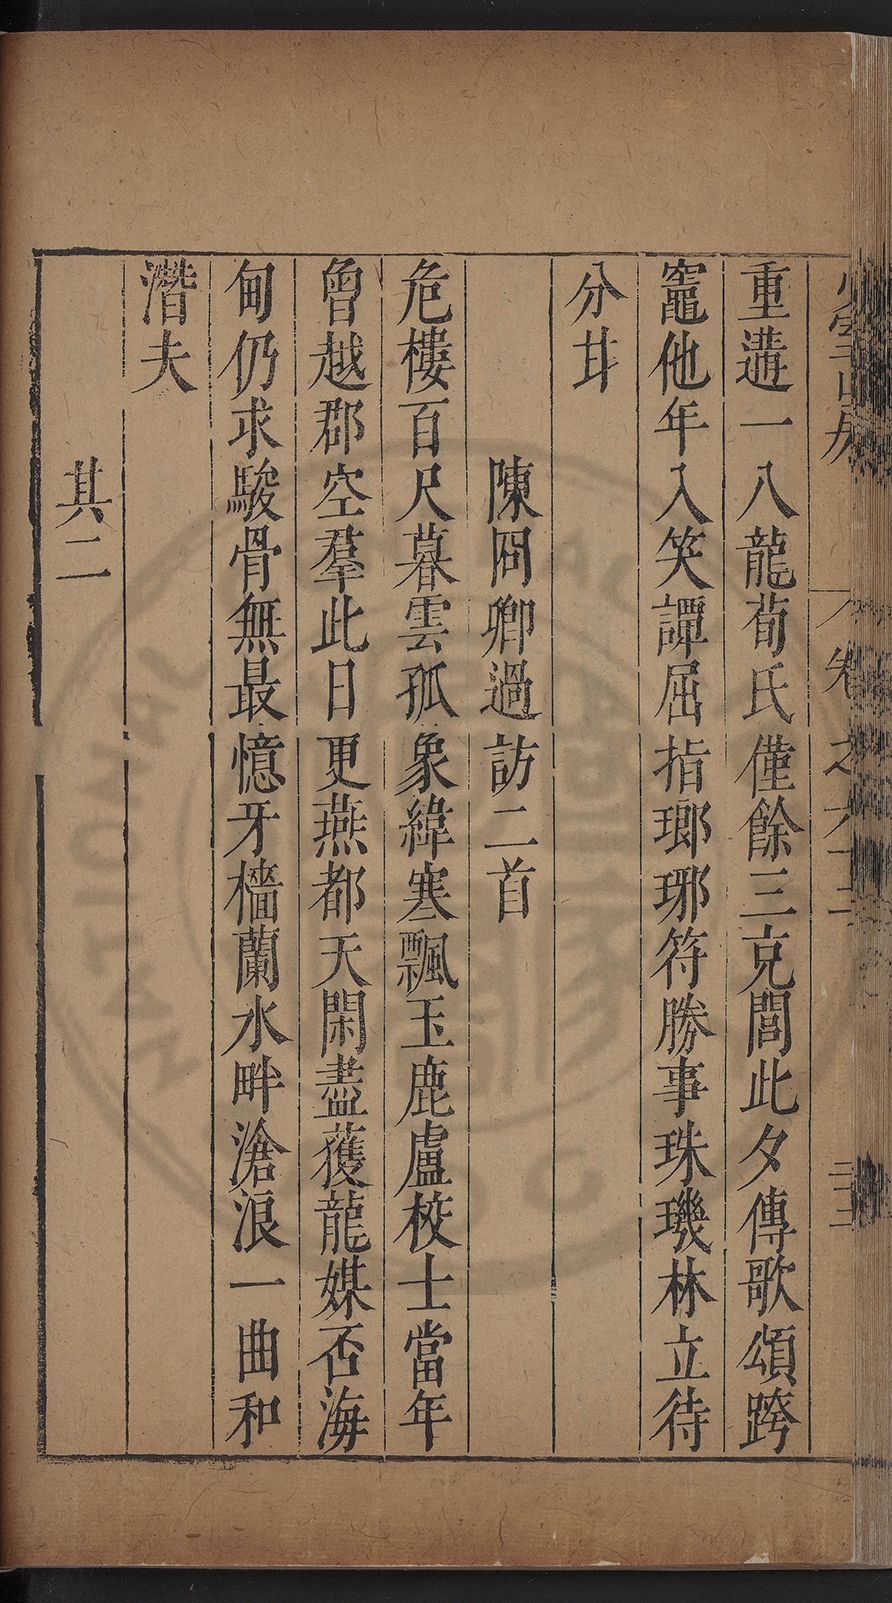 重遘一八龍荀氏僅餘三克閭此夕傳歌頌跨
竈他年入笑譚屈指瑯琊符勝事珠璣林立待
分甘
陳冏卿過訪二首
危樓百尺暮雲孤象緯寒飄玉鹿盧校士當年
曾越郡空羣此日更燕都天閑盡蓰龍媒否海
甸仍求駿骨無最憶牙檣蘭水畔滄浪一曲和
潛夫
其二